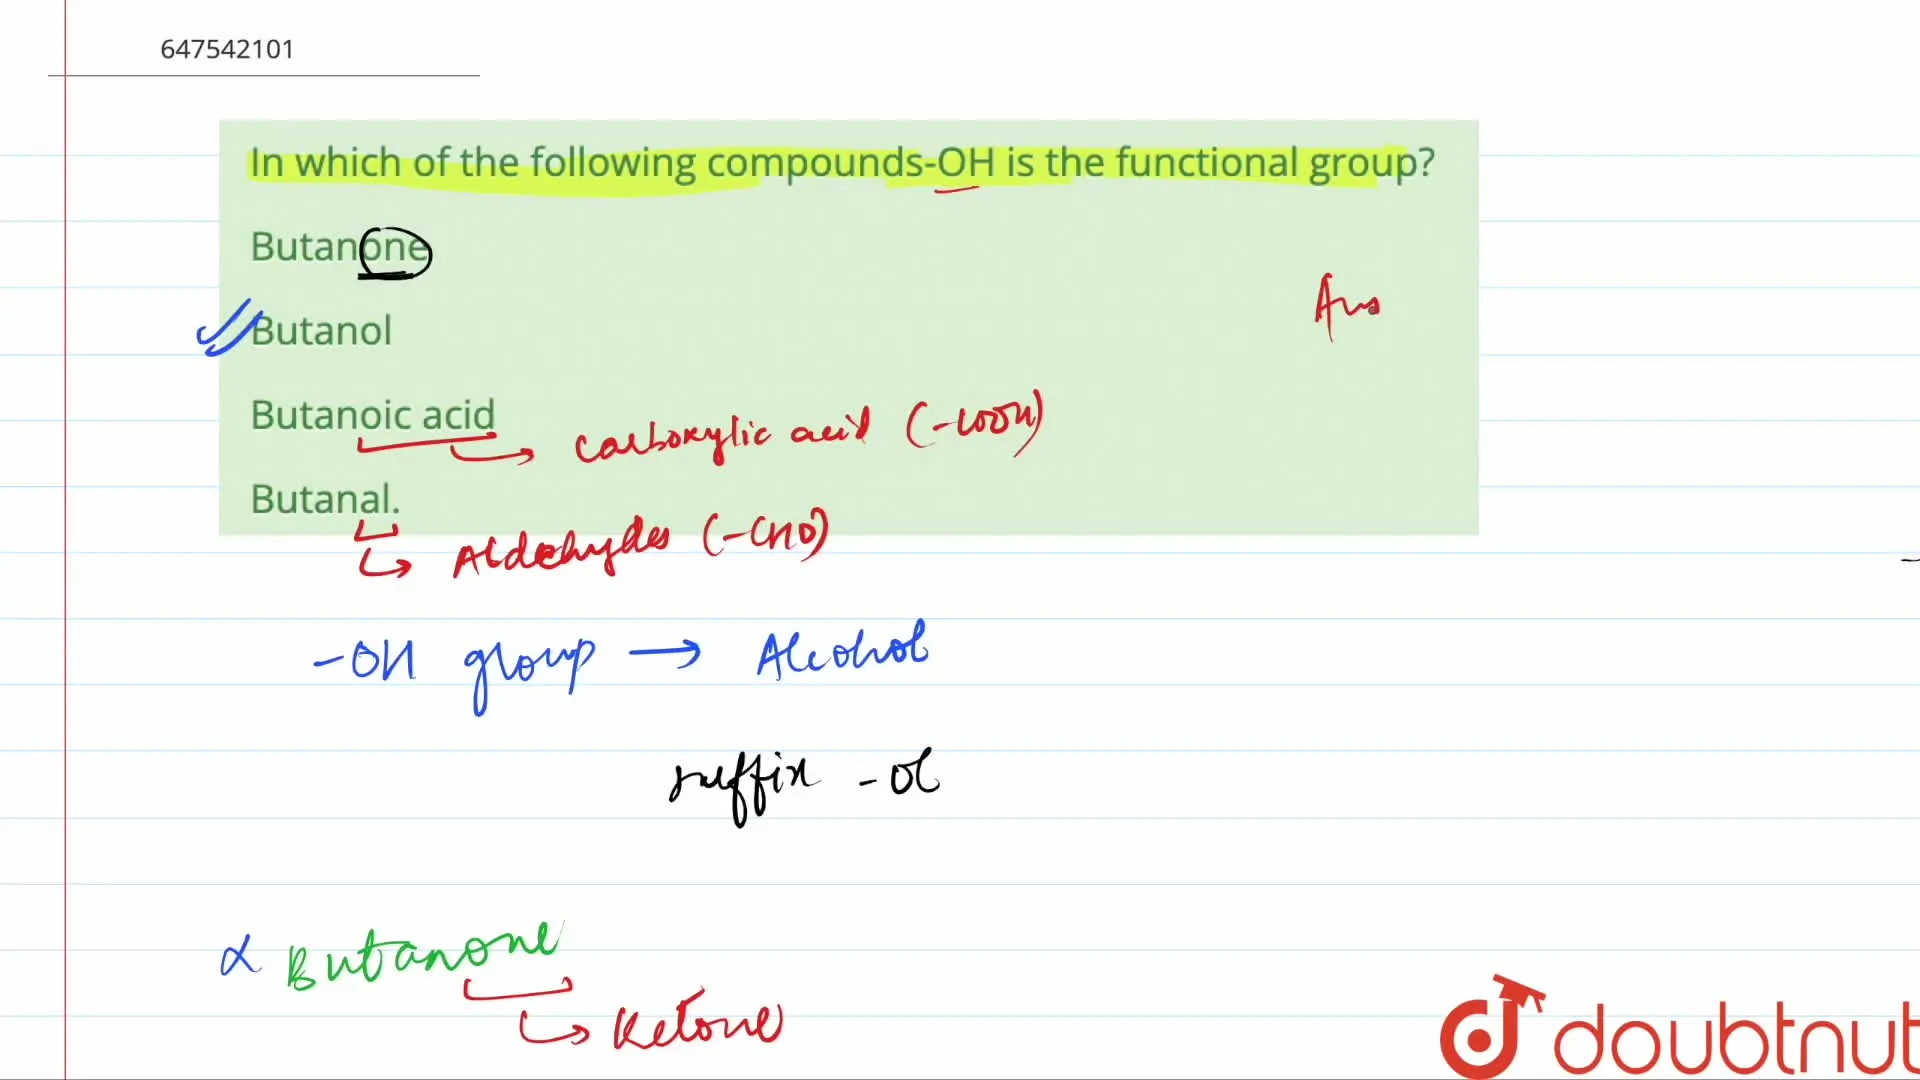 647542101
In which of the following compounds-OH is the functional group?
Butanone
Butanol
Ans
Butanoic acid
Carboxylic acid (-COOH)
Butanal.
Aldehydes (-CHO)
-OH group → Alcohol
suffix -ol
Butanone
Ketone
doubtnut